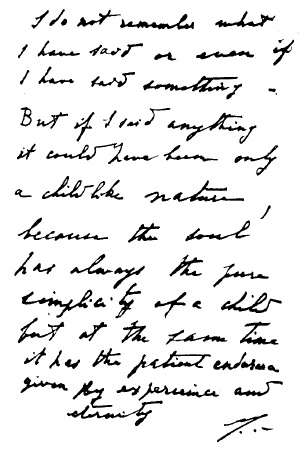 I do not remember what
I have said or even if
I have said something -
But if I said anything
it could have been only
a child like nature,
because the soul
has always the pure
simplicity of a child
but at the same time
it has the patient
given by experience and
eternity